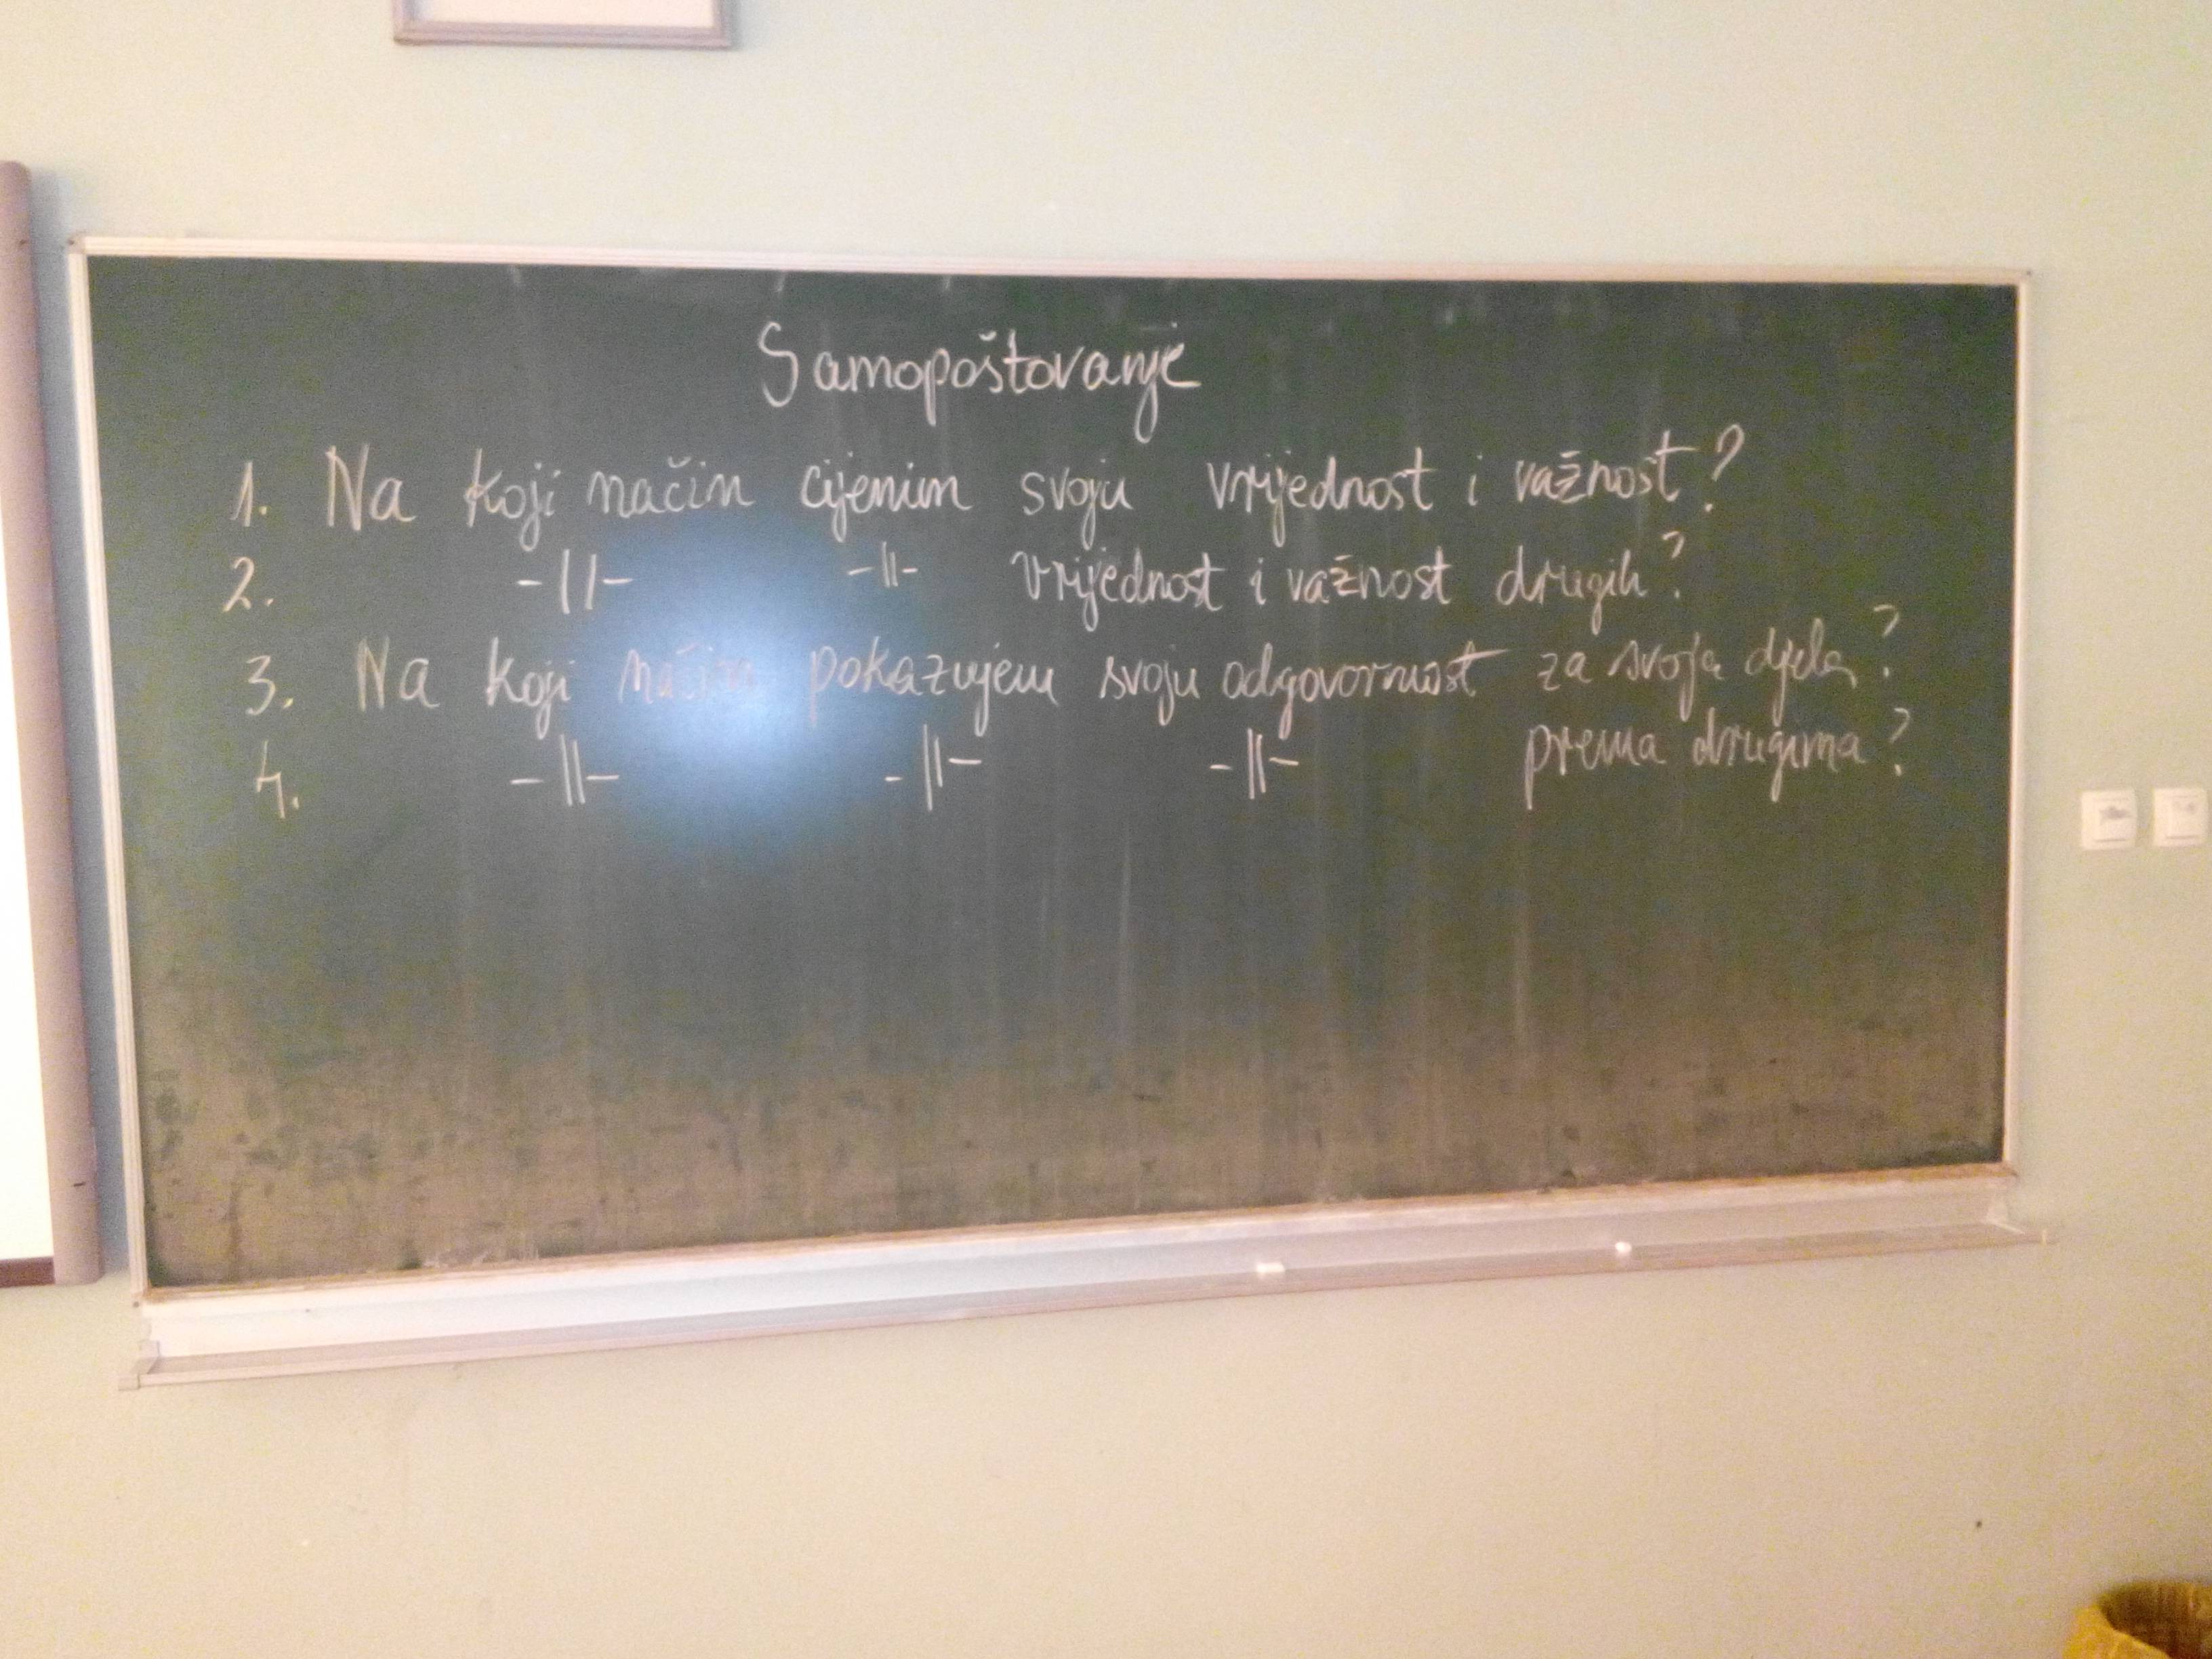 Samopoštovanje
1. Na koji način cijenim svoju vrijednost i važnost?
2. -||- -||- vrijednost i važnost drugih?
3. Na koji način pokazujem svoju odgovornost za svoja djela?
4. -||- -||- -||- prema drugima?